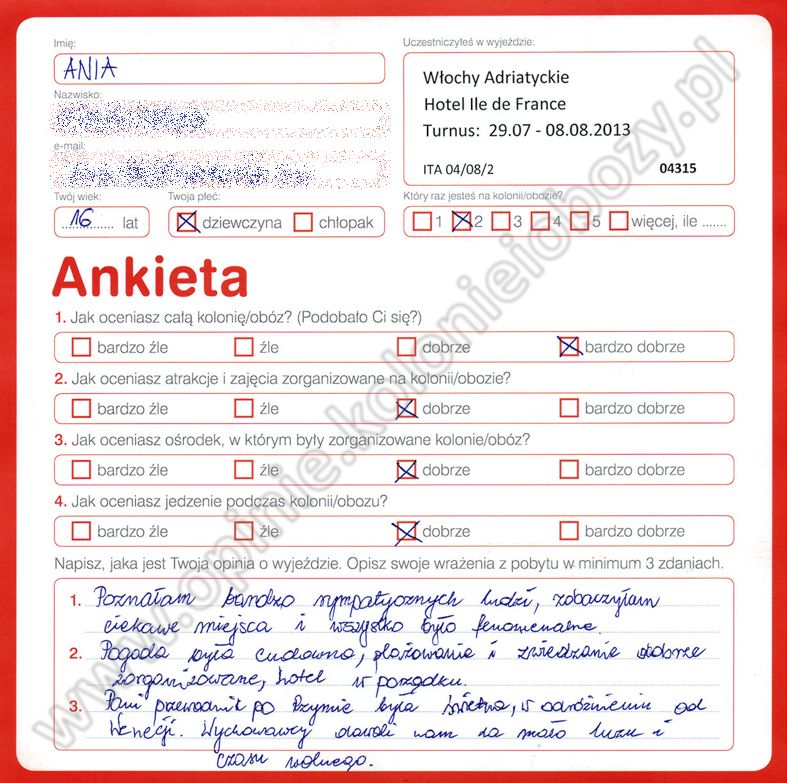 Imię:
ANIA
Nazwisko:
e-mail:
Twój wiek:
16 lat
Twoja płeć:
dziewczyna chłopak
Uczestniczyłeś w wyjeździe:
Włochy Adriatyckie
Hotel Ile de France
Turnus: 29.07 - 08.08.2013
ITA 04/08/2 04315
Który raz jesteś na kolonii/obozie?
1 2 3 4 5 więcej, ile .......
Ankieta
1. Jak oceniasz całą kolonię/obóz? (Podobało Ci się?)
bardzo źle źle dobrze bardzo dobrze
2. Jak oceniasz atrakcje i zajęcia zorganizowane na kolonii/obozie?
bardzo źle źle dobrze bardzo dobrze
3. Jak oceniasz ośrodek, w którym były zorganizowane kolonie/obóz?
bardzo źle źle dobrze bardzo dobrze
4. Jak oceniasz jedzenie podczas kolonii/obozu?
bardzo źle źle dobrze bardzo dobrze
Napisz, jaka jest Twoja opinia o wyjeździe. Opisz swoje wrażenia z pobytu w minimum 3 zdaniach.
1. Poznałam bardzo sympatycznych ludzi, zobaczyłam
ciekawe miejsca i wszystko było fenomenalne.
2. Pogoda była cudowna, plażowanie i zwiedzanie dobrze
zorganizowane, hotel w porządku.
3. Pani przewodnik po Rzymie była świetna, w odróżnieniu od
Wenecji. Wychowawcy dawali nam za mało luzu i
czasu wolnego.
www.opinie.kolonieiobozy.pl